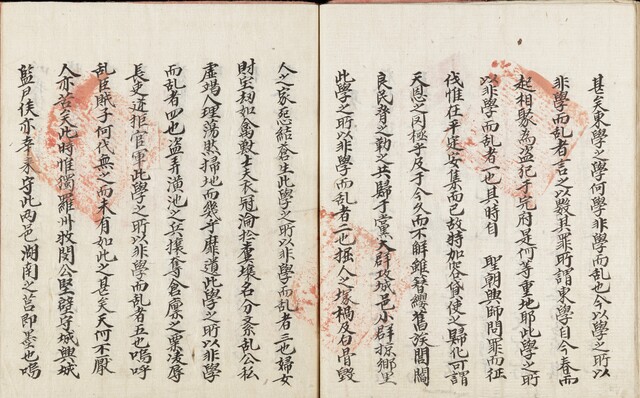 甚矣東學之學何學非學而乱也今以學之所以
非學而乱者言之以數其罪所謂東學自今春而
起相聚爲盗犯于完府是何等重地耶此學之所
以非學而乱者一也其時自 聖朝興師問罪而征
伐惟在平定安集而已故特加容貸使之歸化可謂
天恩之罔極乎及于今久而不解雖簪纓舊族閭閻
良民脅之勒之共歸于黨大群攻城邑小群掠鄕里
此學之所以非學而乱者二也掘人之塚禍及白骨毁
人之家怨結蒼生此學之所以非學而乱者三也婦女
財宝劫如禽獸士夫衣冠淪於塵壤名分紊乱公私
虚竭人理蕩然掃地而幾乎靡道此學之所以非學
而乱者四也盗弄潢池之兵攘奪倉廩之粟凌辱
長吏迹拒官軍此學之所以非學而乱者五也嗚呼
乱臣賊子何代無之而未有如此之甚矣天何不厭
人亦苦矣此時惟獨羅州牧閔公堅壁守城興城
監尹侯亦幸來守此两邑湖南之莒即墨也嗚